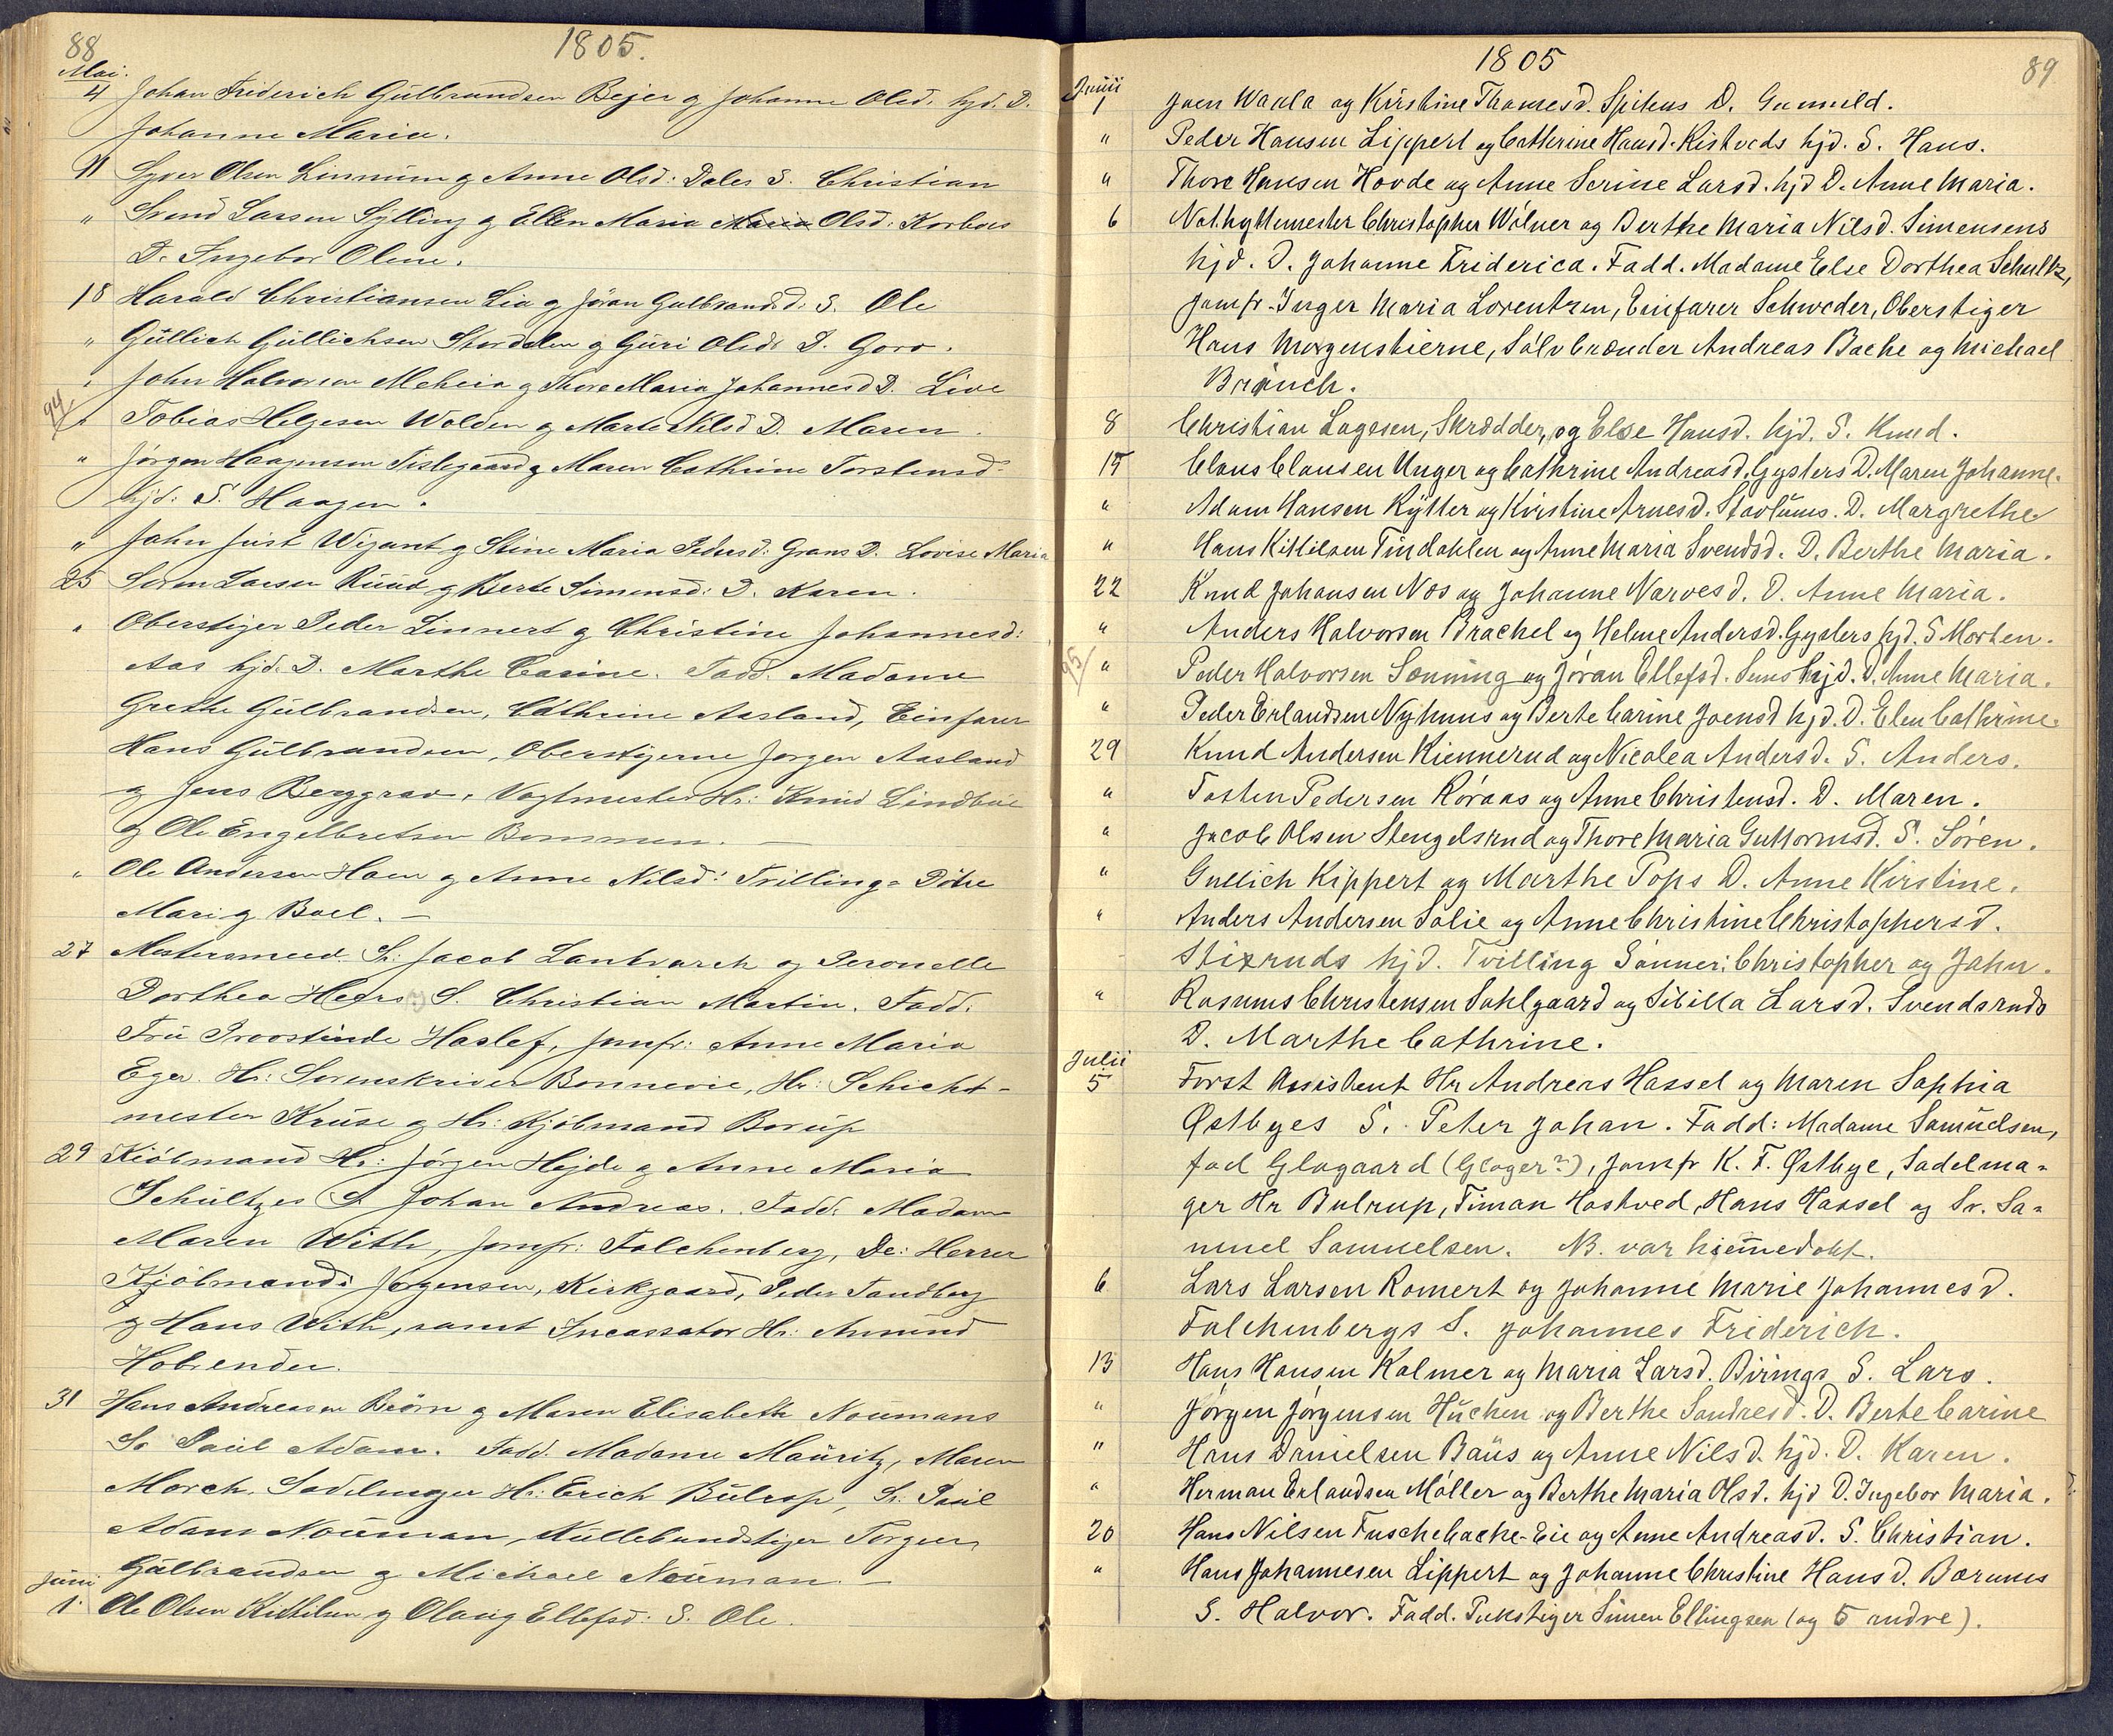 88
1805.
Mai.
4 Johan Friderich Gülbrandsen Bejer og Johanne Olsd. hjd. D.
Johanne Maria.
11 Syver Olsen Linnüm og Anne Olsd: Dales S. Christian
" Svend Larsen Sÿlling og Ellen Maria Maria Olsd: Korboes
D. Ingebor Olene.
18 Harald Christiansen Lia og Jöran Gulbrandsd: S. Ole
" Güllich Güllichsen Stordalen og Güri Olsdr D. Goro.
" John Halvorsen Meheia og Thore Maria Johannesd D. Live
94
" Tobias Helgesen Wolden og Marte Nilsd D. Maren.
" Jörgen Haagensen Tislegaard og Maren Cathrine Torstensd
hjd: S. Haagen.
" John Jüst Wigant og Stine Maria Pedersd: Grans D. Lovise Maria
25 Soren Larsen Rüüd og Berte Simensd: D. Karen.
" Oberstiger Peder Linnert og Christine Johannesd:
Aas hjd. D. Marthe Carine. Fadd. Madame
Grethe Gülbrandsen, Cathrine Aasland, Einfarer
Hans Gülbrandsen, Oberstigerne Jorgen Aasland
og Jens Berggrav, Vagtmester Hr: Knüd Lindböe
og Ole Engelbretsen Bommen. —
" Ole Andersen Hoen og Anne Nilsd: Trillings Döttre
Mari og Boel. —
27 Mestersmed Sr: Jacob Lantvarch og Peronelle
Dorthea Heers S. Christian Martin. Fadd.
Früe Provstinde Haslef, Jomfr: Anne Maria
Eger. Hr: Sorenskriver Bonnevie, Hr: Schicht-
mester Krüse og Hr: Kjöbmand Borüp
29 Kiöbmand Hr: Jörgen Hejde og Anne Maria
Schültzes S Johan Andreas. Fadd: Madam
Maren With, Jomfr: Falchenberg, De: Herrer
Kjöbmænd: Jørgensen, Kirkgaard, Peder Tandberg
og Hans With, samt Incassator Hr: Amünd
Hobænder.
31 Hans Andreasen Beörn og Maren Elisabeth Noümans
S. Paül Adam. Fadd. Madame Maüritz, Maren
Morch, Sadelmager Hr: Erich Bülrop, Sr. Paül
Adam Noüman, Küllebrændstiger Torger
Gülbrandsen og Michael Noüman. —
Juni
1. Ole Olsen Kittilsen og Olaug Ellefsd: S. Ole.
1805
89
Junii
1 Joen Waala og Kirstine Thomesd. Spitens D. Gunnild.
" Peder Hansen Lippert og Cathrine Hansd. Kistveds hjd. S. Hans.
" Thore Hansen Hovde og Anne Serine Larsd. hjd D. Anne Maria.
6 Vathyttemester Christopher Wölner og Berthe Maria Nilsd. Simensens
hjd. D. Johanne Friderica. Fadd. Madame Else Dorthea Schultz,
Jomfr. Inger Maria Lorentzen, Einfarer Schwder, Oberstiger
Hans Morgenstierne, Sölvbrænder Andreas Bache og Michael
Bränch.
8 Christian Lagesen, Skrædder, og Else Hansd. hjd. S. Knud.
15 Claus Clausen Unger og Cathrine Andreasd. Gyslers D. Maren Johanne.
" Adam Hansen Rÿtter og Kirstine Arnesd. Stavlüms. D. Margrethe
" Hans Kittilsen Tindahlen og Anne Maria Svendsd. D. Berthe Maria.
22 Knud Johansen Næs og Johanne Narvesd. D. Anne Maria.
" Anders Halvorsen Brachel og Helene Andersd. Gyslers hjd. S Morten.
95
" Peder Halvorsen Sænning og Jöran Ellefsd. Sems hjd. D. Anne Maria.
" Peder Erlandsen Nyhuus og Berte Carine Joensd hjd. D. Elen Cathrine.
29 Knud Andersen Kiennerud og Nicolea Andersd. S. Anders.
" Tosten Pedersen Röraas og Anne Christensd. D. Maren.
" Jacob Olsen Stengelsrud og Thore Maria Guttormsd. S. Sören.
" Gullich Kippert og Marthe Pops D. Anne Kirstine.
" Anders Andersen Sölie og Anne Christine Christophersd.
Stixruds hjd. Tvilling Sönner: Christopher og John.
" Rasmus Christensen Sahlgaard og Sibilla Larsd. Svendsruds
D. Marthe Cathrine.
Julii
5 Forst Assistent Hr Andreas Hassel og Maren Sophia
Østbyes S. Peter Johan. Fadd: Madame Samüelsen,
fad Glogaard (Gloger?), Jomfr K. F. Østbye, Sadelma-
ger Hr Bulrup, Timan Hostved, Hans Hassel og Sr. Sa-
muel Samuelsen. NB. var hiemmedöbt.
6 Lars Larsen Romert og Johanne Marie Johannesd.
Falchenbergs S. Johannes Friderich.
13 Hans Hansen Kolmer og Maria Larsd. Birings S. Lars.
" Jörgen Jörgensen Hüchen og Berthe Sandresd. D. Berte Carine
" Hans Danielsen Baüs og Anne Nilsd. hjd. D. Karen.
" Herman Erlandsen Möller og Berthe Maria Olsd. hjd D. Ingebor Maria.
20 Hans Nilsen Fuschebache-Eie og Anne Andreasd. S. Christian.
" Hans Johannesen Lippert og Johanne Christine Hansd. Bærums
S. Halvor. Fadd. Pukstiger Simen Ellingsen (og 5 andre).